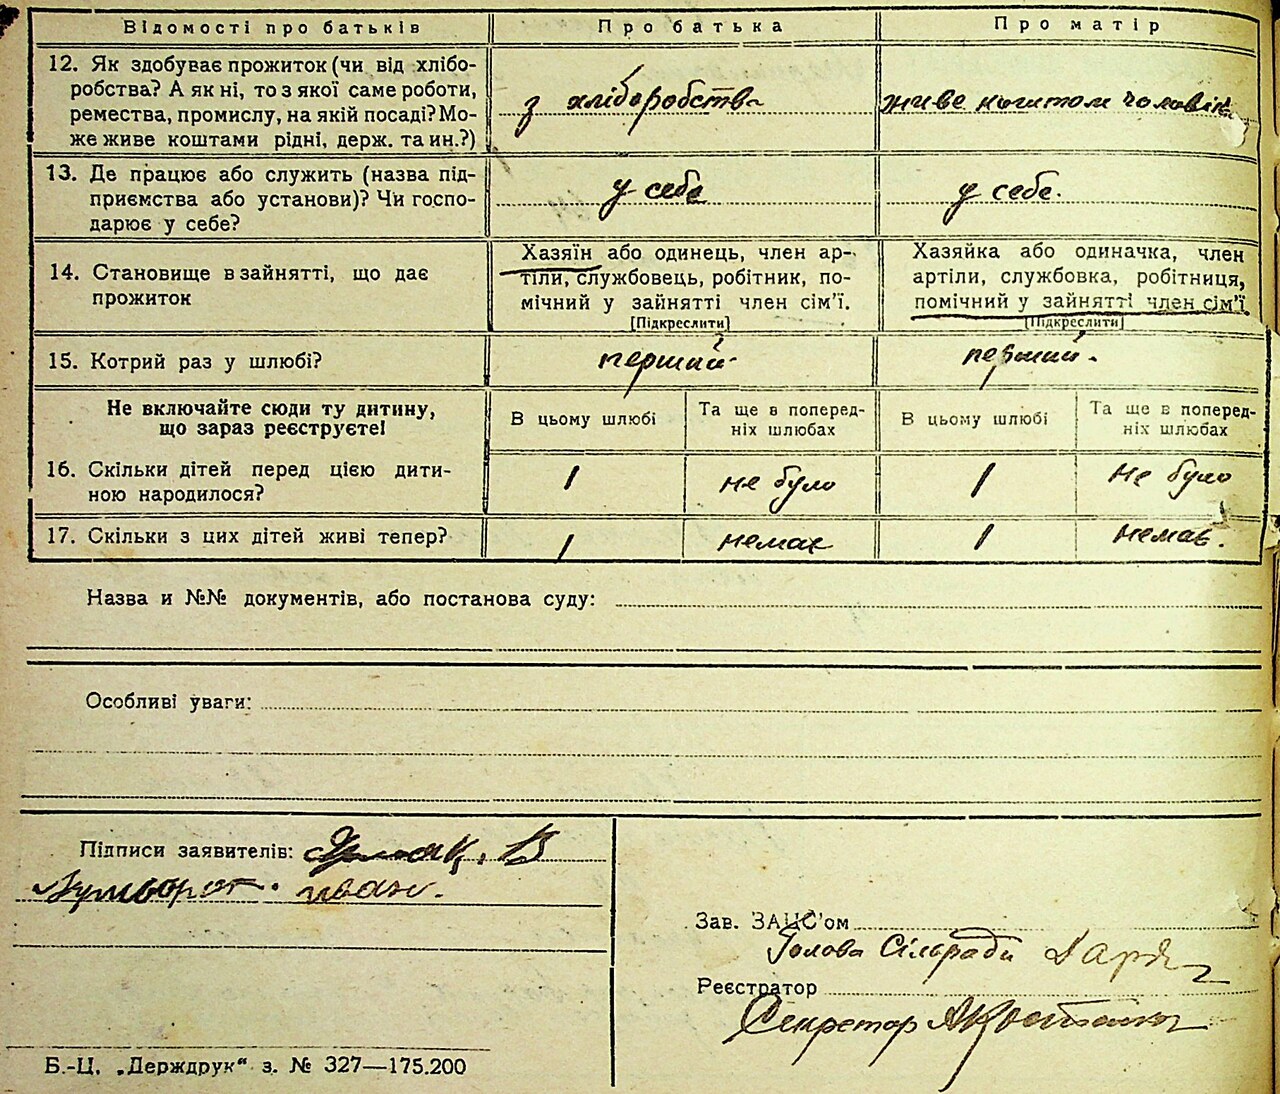 Відомості про батьків Про батька Про матір
12. Як здобуває прожиток (чи від хлібо-
робства? А як ні, то з якої саме роботи,
ремества, промислу, на якій посаді? Мо-
же живе коштами рідні, держ. та ин.?)
з хліборобства
живе коштом чоловіка
13. Де працює або служить (назва під-
приємства або установи)? Чи госпо-
дарює у себе?
у себе
у себе.
14. Становище в зайнятті, що дає
прожиток
Хазяїн або одинець, член ар-
тіли, службовець, робітник, по-
мічний у зайнятті член сім'ї.
[Підкреслити]
Хазяйка або одиначка, член
артіли, службовка, робітниця,
помічний у зайнятті член сім'ї
[Підкреслити]
15. Котрий раз у шлюбі?
перший
перший.
Не включайте сюди ту дитину,
що зараз реєструєте!
В цьому шлюбі
Та ще в поперед-
ніх шлюбах
В цьому шлюбі
Та ще в поперед-
ніх шлюбах
16. Скільки дітей перед цією дити-
ною народилося?
1 не було 1 не було
17. Скільки з цих дітей живі тепер?
1 немає 1 немає.
Назва и №№ документів, або постанова суду:
Особливі уваги:
Підписи заявителів:
иван.
Зав. ЗАЦС'ом
Голова Сільради
Реєстратор
Секретар
Б.-Ц. „Держдрук“ з. № 327—175.200